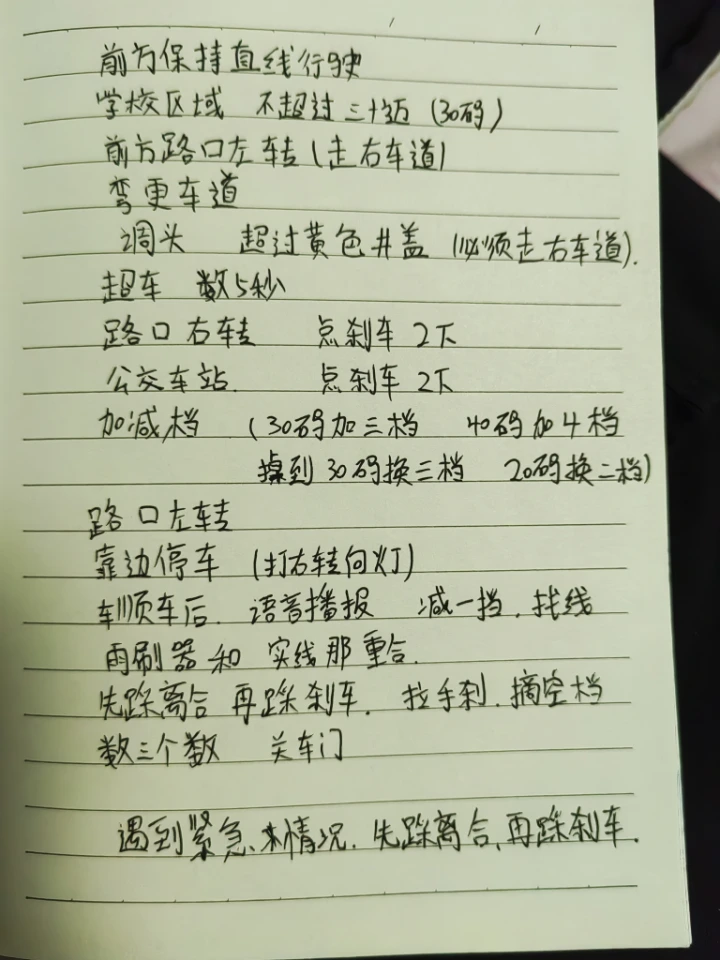 前方保持直线行驶
学校区域 不超过三十迈（30码）
前方路口左转（走右车道）
弯更车道
调头 超过黄色井盖（必须走右车道）.
超车 数5秒
路口右转 点刹车2下
公交车站. 点刹车2下
加减档 （30码加三档 40码加4档
操到30码换三档 20码换二档）
路口左转
靠边停车（打右转向灯）
车顺车后. 语音播报 减一挡. 找线
雨刷器和 实线那重合.
先踩离合 再踩刹车. 拉手刹. 摘空档
数三个数 关车门
遇到紧急情况. 先踩离合, 再踩刹车.